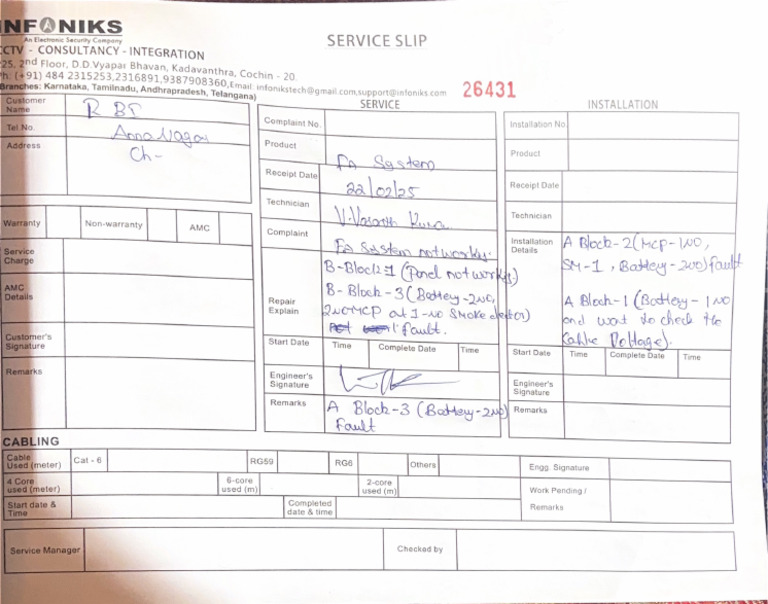 INFONIKS
An Electronic Security Company
CCTV - CONSULTANCY - INTEGRATION
SERVICE SLIP
25, 2nd Floor, D.D.Vyapar Bhavan, Kadavanthra, Cochin - 20.
Ph: (+91) 484 2315253,2316891,9387908360,Email: infonikstech@gmail.com,support@infoniks.com
Branches: Karnataka, Tamilnadu, Andhrapradesh, Telangana)
26431
Customer Name R BI
Tel No.
Address Anna Nagar
Ch-
Warranty Non-warranty AMC
Service Charge
AMC Details
Customer's Signature
Remarks
SERVICE
Complaint No.
Product FA System
Receipt Date 22/02/25
Technician V.Vasanth Kumar
Complaint FA System not working.
Repair Explain B-Block-1 (Panel not working)
B-Block-3 (Battery-2NO,
2NO MCP at 1-NO Smoke detector)
fault.
Start Date Time Complete Date Time
Engineer's Signature
Remarks A Block-3 (Battery-2NO)
Fault
INSTALLATION
Installation No.
Product
Receipt Date
Technician
Installation Details A Block-2 (MCP-1NO,
SM-1, Battery-2NO) fault
A Block-1 (Battery-1NO
and want to check the
Cable Voltage).
Start Date Time Complete Date Time
Engineer's Signature
Remarks
CABLING
Cable Used (meter) Cat - 6 RG59 RG6 Others Engg. Signature
4 Core used (meter) 6-core used (m) 2-core used (m) Work Pending / Remarks
Start date & Time Completed date & time
Service Manager Checked by